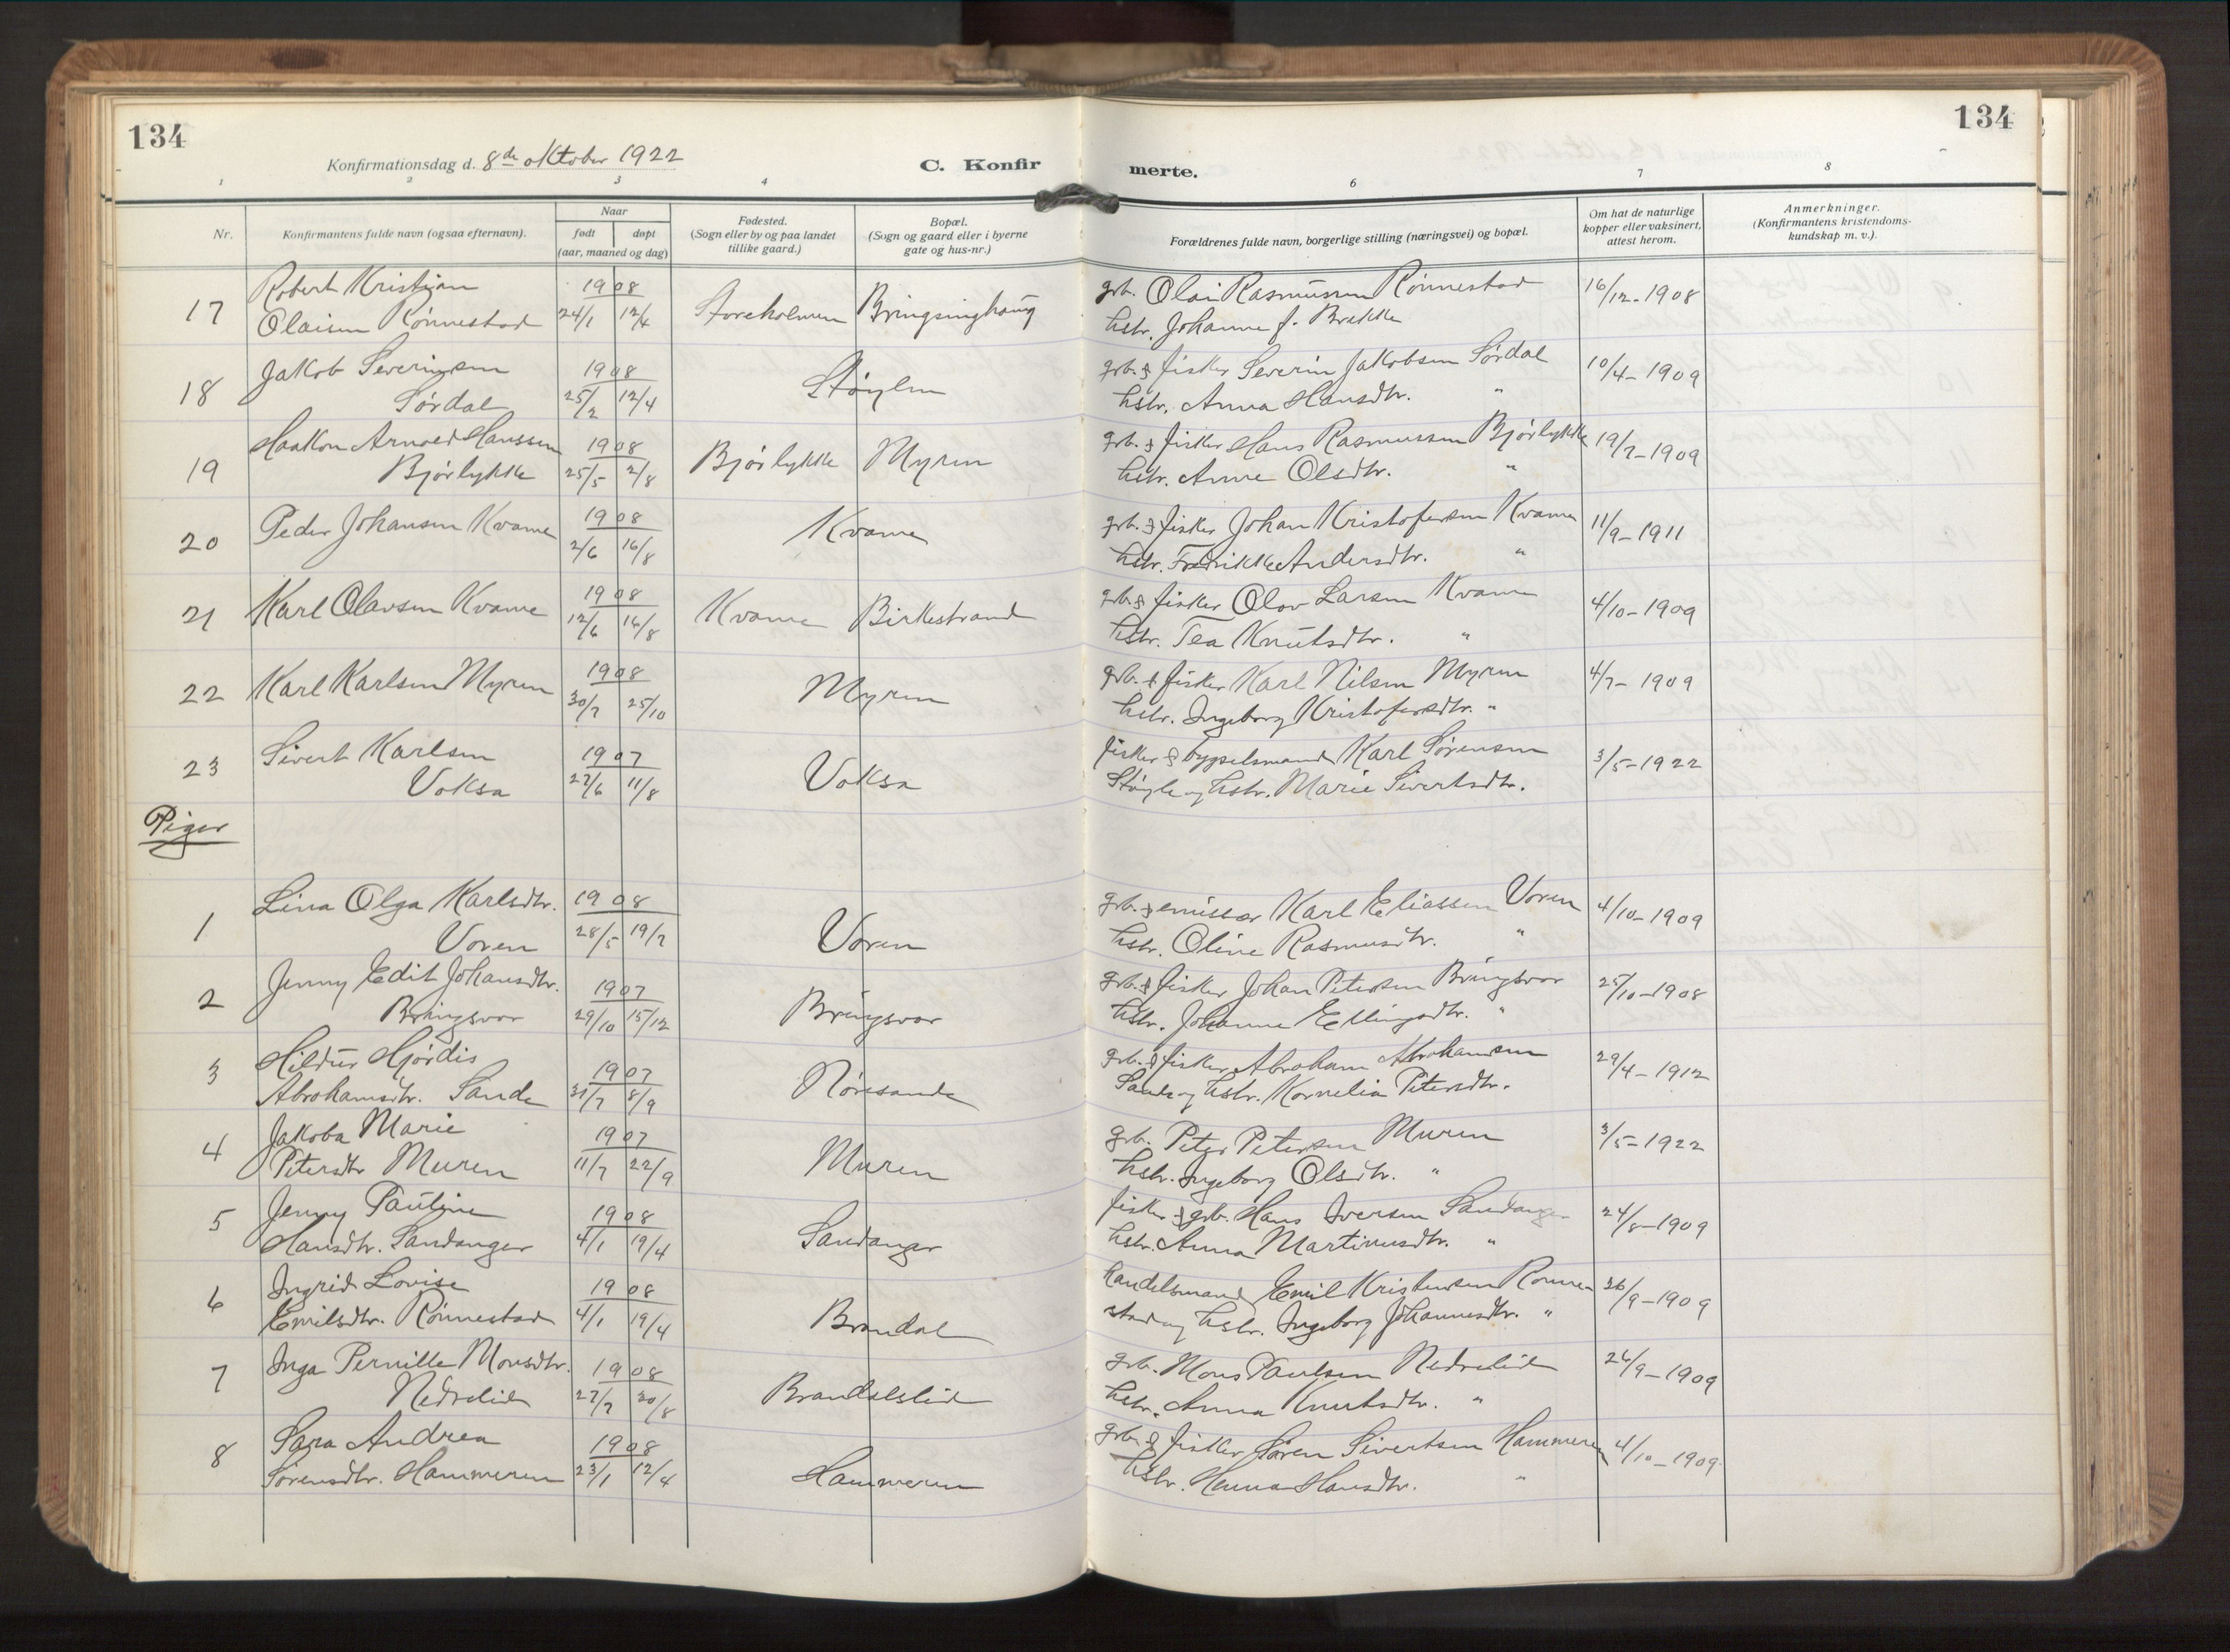 134
134
Konfirmationsdag d. 8de oktober 1922
C. Konfir
merte.
1 2 3 4 6 7 8
Nr.
Konfirmantens fulde navn (ogsaa efternavn).
Naar
født døpt
(aar, maaned og dag)
Fødested.
(Sogn eller by og paa landet
tillike gaard.)
Bopæl.
(Sogn og gaard eller i byerne
gate og hus-nr.)
Forældrenes fulde navn, borgerlige stilling (næringsvei) og bopæl.
Om hat de naturlige
kopper eller vaksinert,
attest herom.
Anmerkninger.
(Konfirmantens kristendoms-
kundskap m. v.).
Robert Kristian 1908 grb. Olai Rasmussen Rønnestad 16/12-1908
17 Olaisen Rønnestad 24/1 12/4 Storeholmen Bringsinghaug hstr. Johanne f. Brekke
Jakob Severinsen 1908 grb. & fisker Severin Jakobsen Sørdal 10/4-1909
18 Sørdal 25/2 12/4 Støylen hstr. Anna Hansdtr. "
Haakon Arnold Hanssen 1908 grb. & fisker Hans Rasmussen Bjørlykke 19/7-1909
19 Bjørlykke 25/5 2/8 Bjørlykke Myren hstr. Anne Olsdtr. "
Peder Johansen Kvame 1908 Kvame grb. & fisker Johan Kristofersen Kvame 11/9-1911
20 2/6 16/8 hstr. Fredrikke Andersdtr. "
Karl Olavsen Kvame 1908 Kvame Birkestrand grb. & fisker Olav Larsen Kvame 4/10-1909
21 12/6 16/8 hstr. Tea Knutsdtr. "
22 Karl Karlsen Myren 1908 Myren grb. & fisker Karl Nilsen Myren 4/7-1909
30/7 25/10 hstr. Ingeborg Kristofersdtr. "
23 Sivert Karlsen 1907 fisker & bygselsmand Karl Sørensen 3/5-1922
Voksa 27/6 11/8 Voksa Støyle og hstr. Marie Sivertsdtr.
Piger
Lina Olga Karlsdtr. 1908 grb. & emissær Karl Eliassen Voren 4/10-1909
1 Voren 28/5 19/7 Voren hstr. Oline Rasmusdtr. "
Jenny Edit Johansdtr. 1907 grb. & fisker Johan Petersen Bringsvor 25/10-1908
2 Bringsvor 29/10 15/12 Bringsvor hstr. Johanne Ellingsdtr. "
Hildur Hjørdis 1907 grb. & fisker Abraham Abrahamsen 29/4-1912
3 Abrahamsdtr. Sande 31/7 8/9 Nøresande Sande og hstr. Kornelia Petersdtr.
Jakoba Marie 1907 grb. Peter Petersen Muren 3/5-1922
4 Petersdtr Muren 11/7 22/9 Muren hstr. Ingeborg Olsdtr. "
Jenny Pauline 1908 fisker & grb. Hans Iversen Sandanger 24/8-1909
5 Hansdtr. Sandanger 4/1 19/4 Sandanger hstr. Anna Martinusdtr. "
Ingrid Lovise 1908 handelsmand Emil Kristensen Rønne- 26/9-1909
6 Emilsdtr. Rønnestad 4/1 19/4 Brandal stad og hstr. Ingeborg Johannesdtr. "
Inga Pernille Monsdtr. 1908 grb. Mons Paulsen Nedrelid 26/9-1909
7 Nedrelid 27/7 30/8 Brandalslid hstr. Anna Knutsdtr. "
Sara Andrea 1908 grb. & fisker Søren Sivertsen Hammeren 4/10-1909
8 Sørensdtr. Hammeren 23/1 12/4 Hammeren hstr. Hanna Hansdtr. "